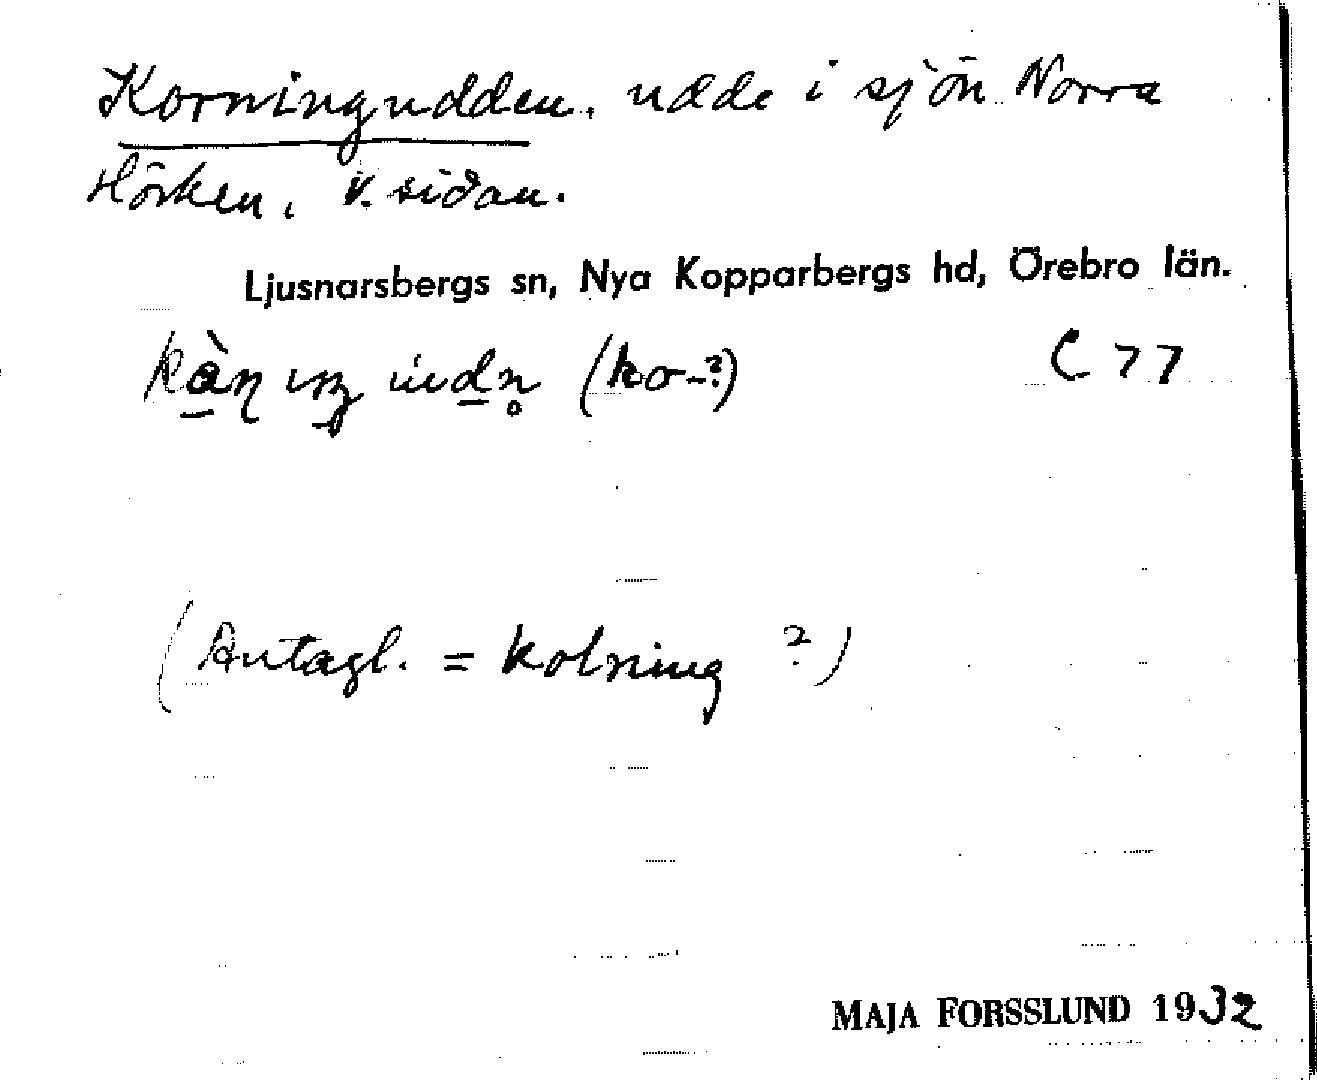 Korningudden, udde i sjön Norra
Hörken, v. sidan.
Ljusnarsbergs sn, Nya Kopparbergs hd, Örebro län.
(ko-?) C 77
(Antagl. = kolning ?)
MAJA FORSSLUND 1932